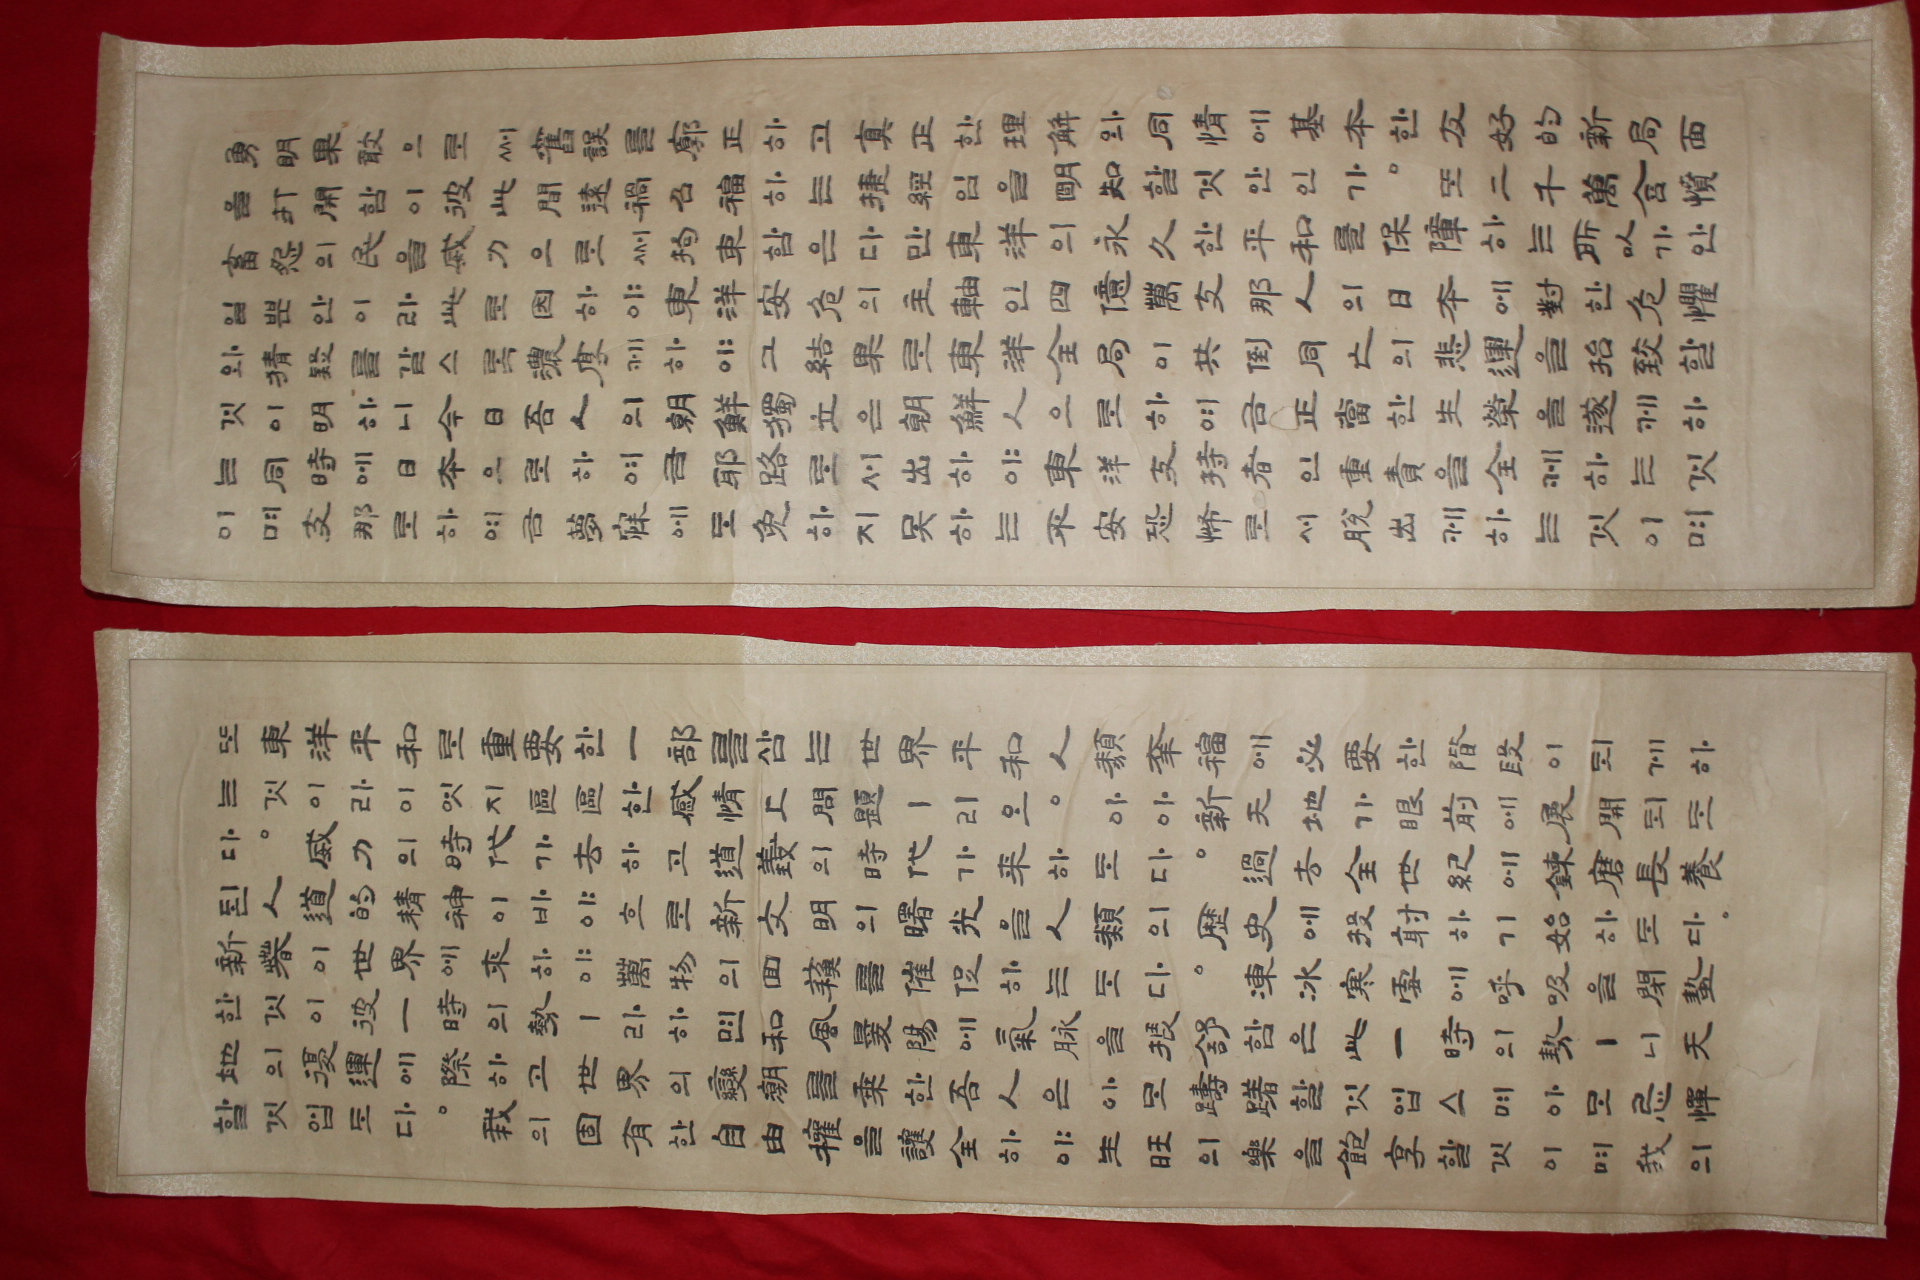 勇明果敢으로써舊誤를廓正하고真正한理解와同情에基本한友好的新局面
을打開함이彼此間遠禍召福하는捷經임을明知할것안인가。또二千萬含憤
畜怨의民을威力으로써拘束함은다만東洋의永久한平和를保障하는所以가안
일뿐안이라此로因하야東洋安危의主軸인四億萬支那人의日本에對한危懼
와猜疑를갈스록濃厚케하야그結果로東洋全局이共倒同亡의悲運을招致할
것이明하니今日吾人의朝鮮獨立은朝鮮人으로하여금正當한生榮을遂케하
는同時에日本으로하여금耶路로서出하야東洋支持者인重責을全케하는것
이며支那로하여금夢寐에도免하지못하는不安恐怖로서脫出케하는것이며
또東洋平和로重要한一部를삼는世界平和人類幸福에必要한階段이되게하
는것이라이엇지區區한感情上問題ㅣ리오。아아新天地가眼前에展開되도
다。威力의時代가去하고道義의時代가来하도다。過去全世紀에鍊磨長養
된人道的精神이바야흐로新文明의曙光을人類의歷史에投射하기始하도다。
新春이世界에來하야萬物의回蘇를催促하는도다。凍冰寒雪에呼吸을閉蟄
한것이彼一時의勢ㅣ라하면和風暖陽에氣脉을振舒함은此一時의勢ㅣ니天
地의復運에際하고世界의變潮를乘한吾人은아모躊躇할것업스며아모忌憚
할것업도다。我의固有한自由權을護全하야生旺의樂을飽享할것이며我의